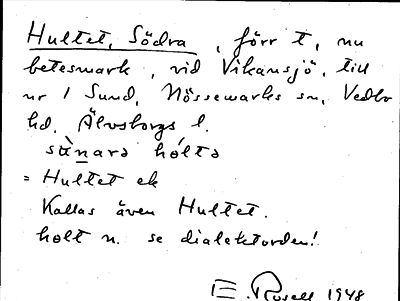 Hultet, Södra, förr t, nu
betesmark, vid Vikansjö, till
nr 1 Sund, Nössemarks sn, Vedbo
hd. Älvsborgs l.
hόltə
= Hultet ek
Kallas även Hultet.
holt n. se dialektorden!
E. Rosell 1948